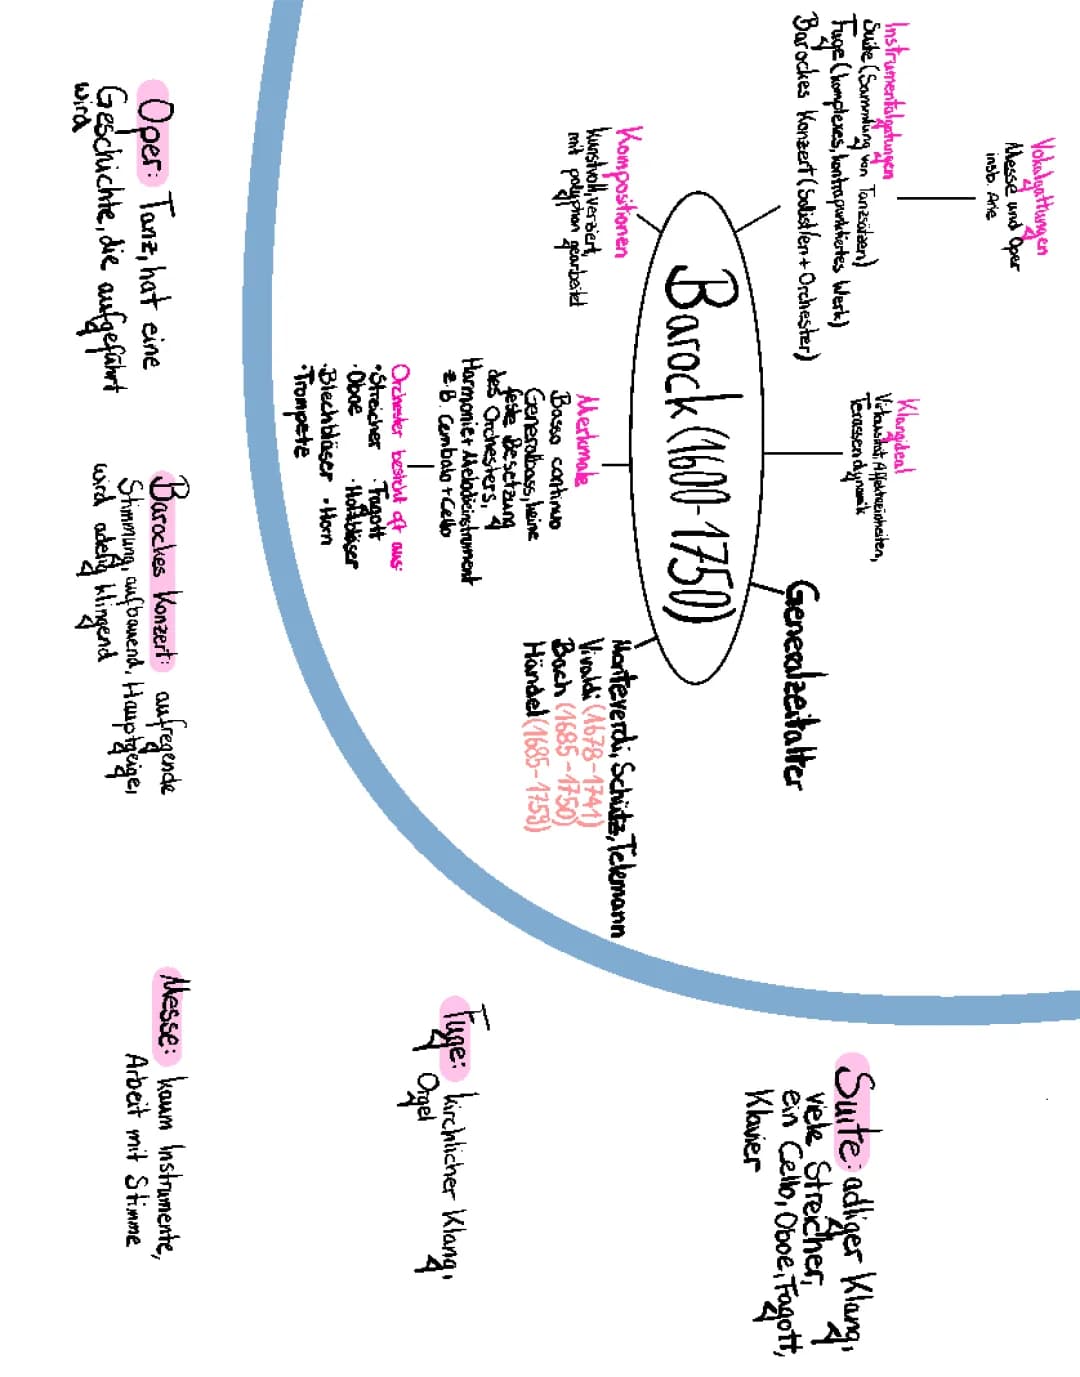 Vokalgattungen
Messe und Oper
insb. Arie
Instrumentalgattungen
Suite (Sammlung von Tanzsätzen)
Fuge (komplexes, kontrapunktiertes Werk)
Barockes Konzert (Solist/en + Orchester)
Klangideal
Virtuosität, Affekteinheiten,
Terassendynamik
Generalzeitalter
Barock (1600-1750)
Kompositionen
kunstvoll, verziert,
mit polyphon gearbeitet
Merkmale
Basso continuo
Generalbass, keine
feste Besetzung
des Orchesters,
Harmonie+Melodieinstrument
z.B. Cembalo + Cello
Orchester besteht oft aus:
• Streicher • Fagott
• Oboe • Holzbläser
• Blechbläser • Horn
• Trompete
Monteverdi, Schütz, Telemann
Vivaldi (1678-1741)
Bach (1685-1750)
Händel (1685-1759)
Suite: adliger Klang,
viele Streicher,
ein Cello, Oboe, Fagott,
Klavier
Fuge: kirchlicher Klang,
Orgel
Oper: Tanz, hat eine
Geschichte, die aufgeführt
wird
Barockes Konzert: aufregende
Stimmung, aufbauend, Hauptgeige,
wird adelig klingend
Messe: kaum Instrumente,
Arbeit mit Stimme